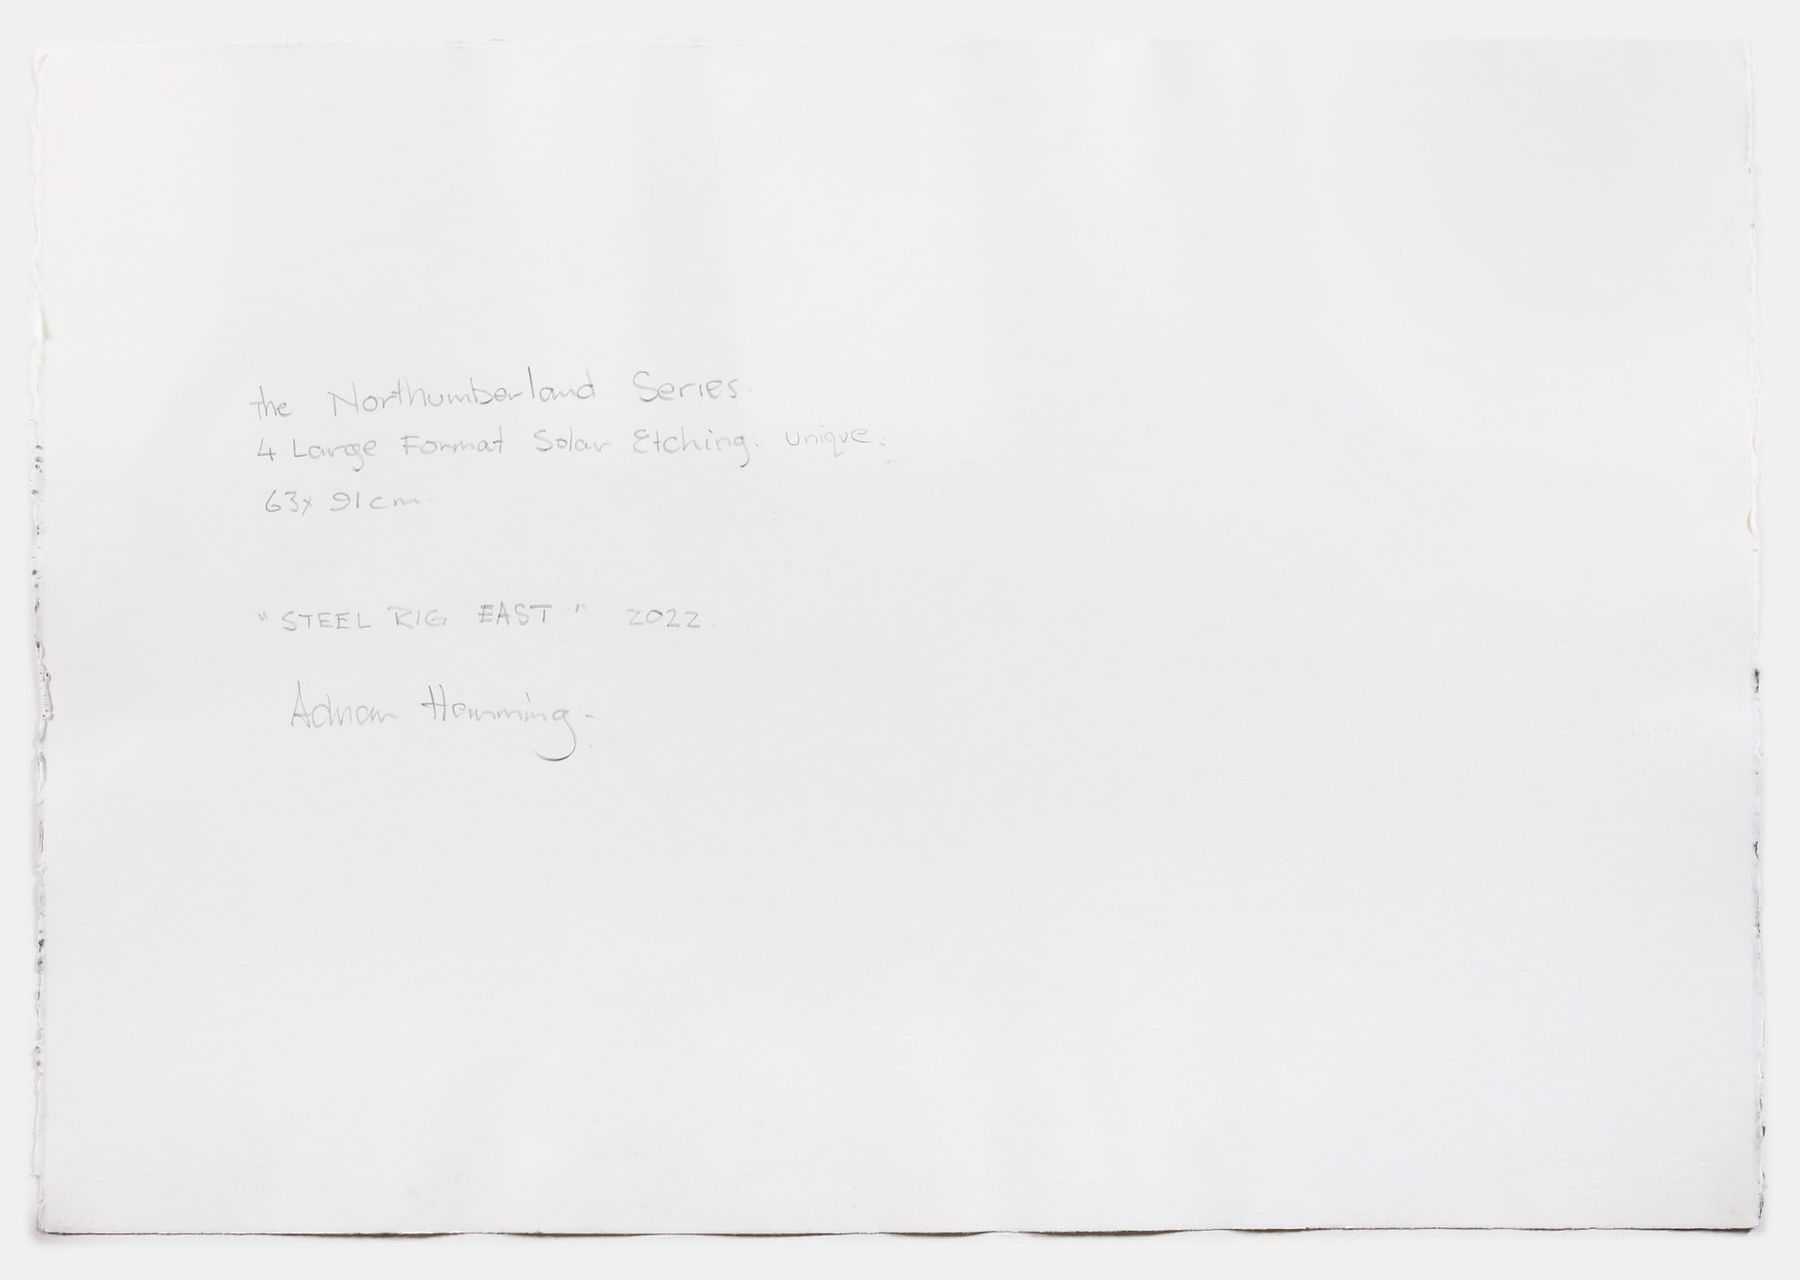 the Northumberland Series.
4 Large Format Solar Etching. Unique.
63x 91cm
"STEEL RIG EAST" 2022.
Adrian Hemming.